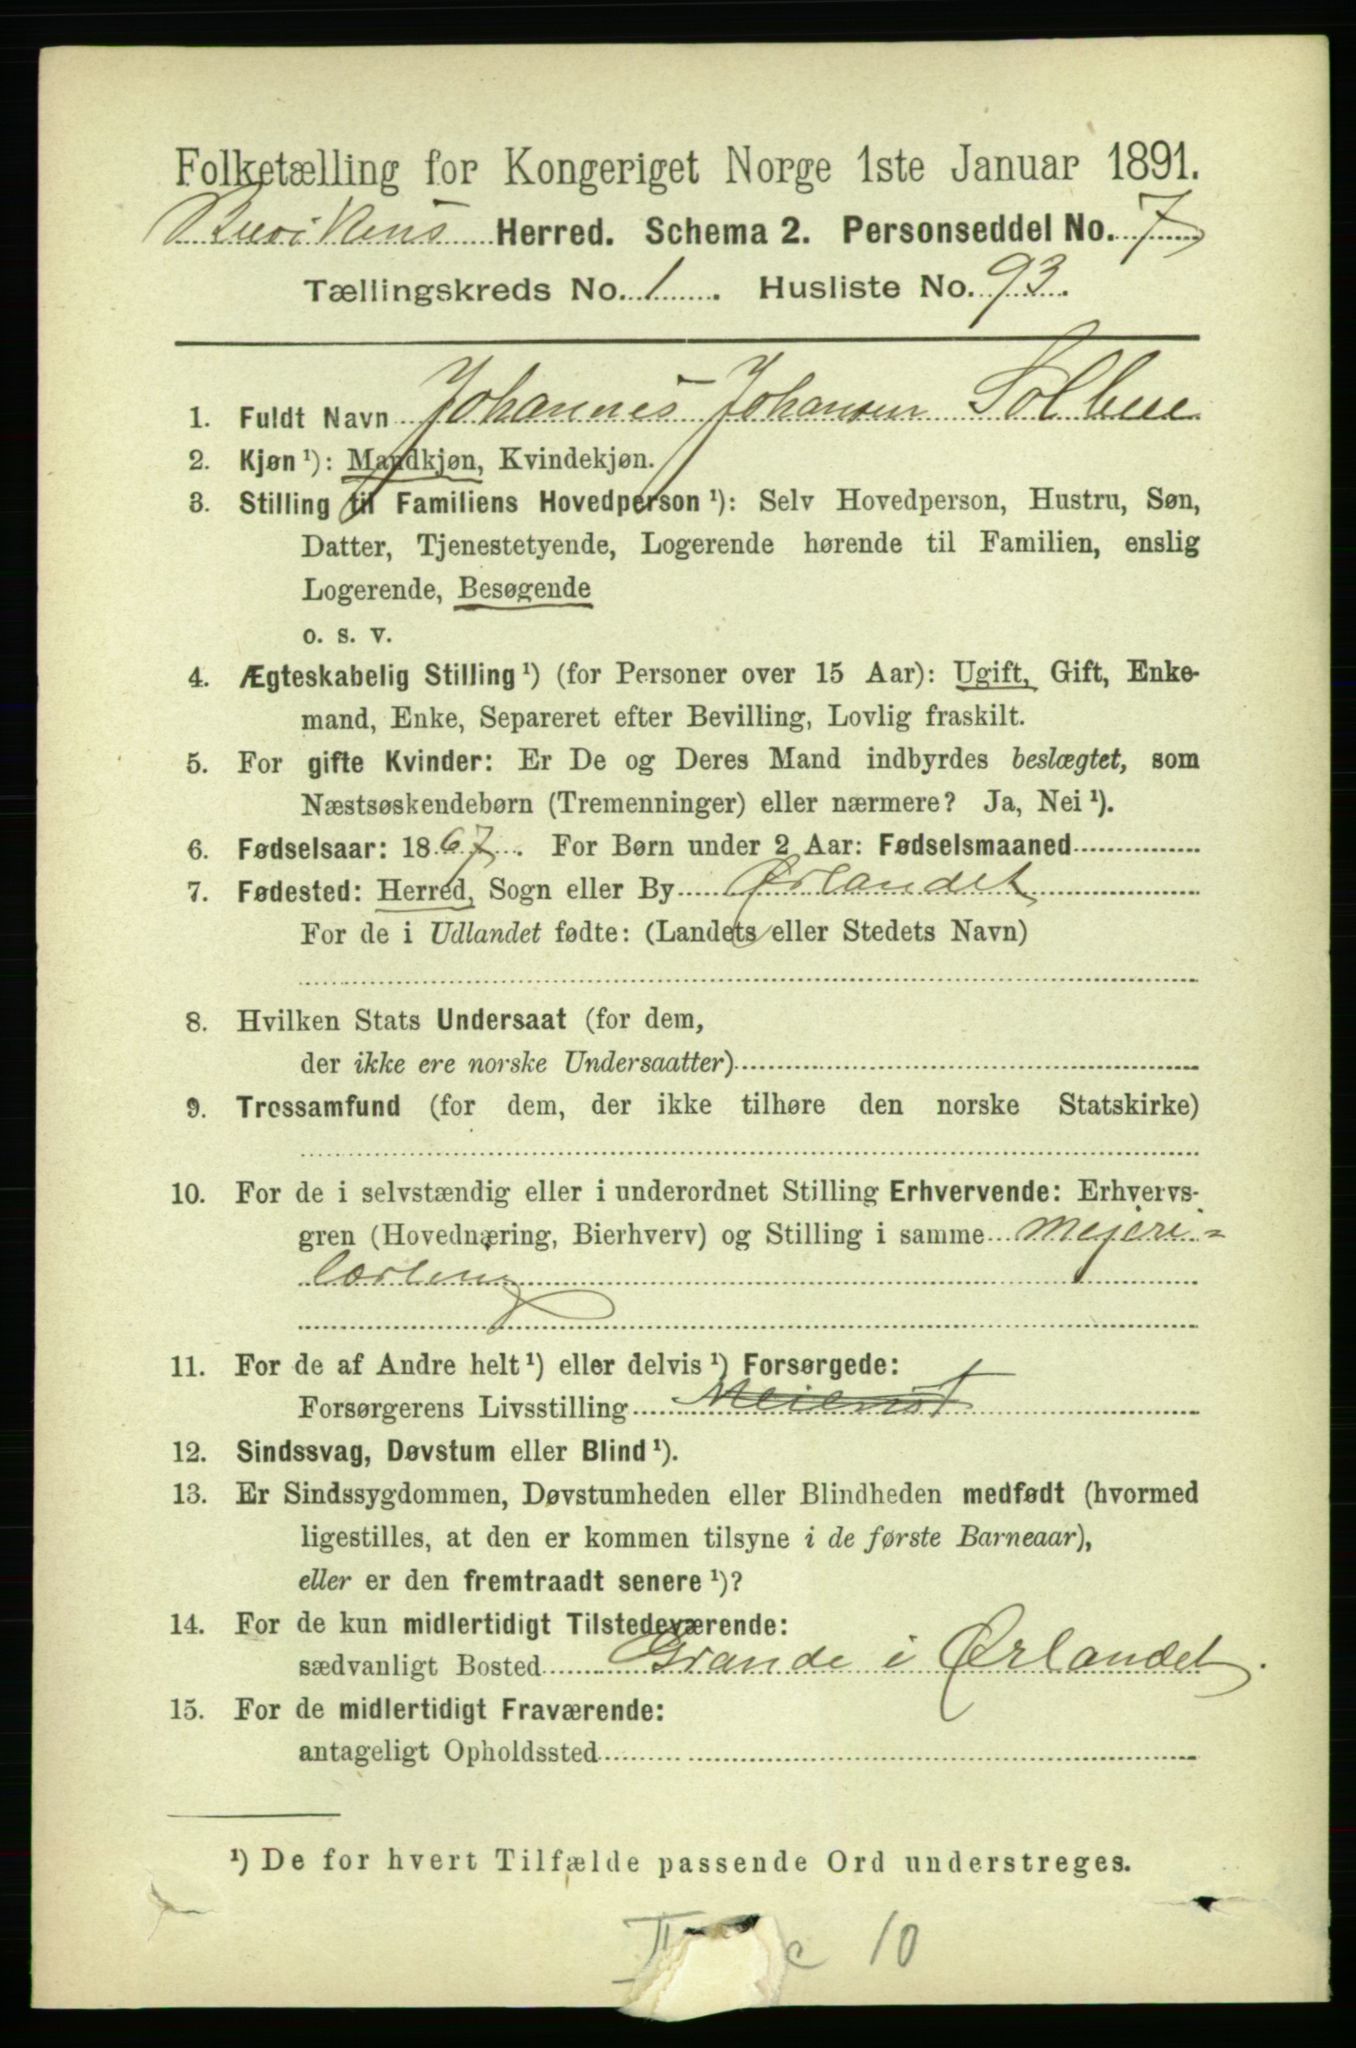 Folketælling for Kongeriget Norge 1ste Januar 1891.
Buvikens Herred. Schema 2. Personseddel No. 7
Tællingskreds No. 1. Husliste No. 93.
1. Fuldt Navn Johannes Johansen Solbue
2. Kjøn ¹): Mandkjøn, Kvindekjøn.
3. Stilling til Familiens Hovedperson ¹): Selv Hovedperson, Hustru, Søn,
Datter, Tjenestetyende, Logerende hørende til Familien, enslig
Logerende, Besøgende
o. s. v.
4. Ægteskabelig Stilling ¹) (for Personer over 15 Aar): Ugift, Gift, Enke-
mand, Enke, Separeret efter Bevilling, Lovlig fraskilt.
5. For gifte Kvinder: Er De og Deres Mand indbyrdes beslægtet, som
Næstsøskendebørn (Tremenninger) eller nærmere? Ja, Nei ¹).
6. Fødselsaar: 1867. For Børn under 2 Aar: Fødselsmaaned
7. Fødested: Herred, Sogn eller By Ørlandet
For de i Udlandet fødte: (Landets eller Stedets Navn)
8. Hvilken Stats Undersaat (for dem,
der ikke ere norske Undersaatter)
9. Trossamfund (for dem, der ikke tilhøre den norske Statskirke)
10. For de i selvstændig eller i underordnet Stilling Erhvervende: Erhvervs-
gren (Hovednæring, Bierhverv) og Stilling i samme Mejeri-
lærling
11. For de af Andre helt ¹) eller delvis ¹) Forsørgede:
Forsørgerens Livsstilling Meierist
12. Sindssvag, Døvstum eller Blind ¹).
13. Er Sindssygdommen, Døvstumheden eller Blindheden medfødt (hvormed
ligestilles, at den er kommen tilsyne i de første Barneaar),
eller er den fremtraadt senere ¹)?
14. For de kun midlertidigt Tilstedeværende:
sædvanligt Bosted Grande i Ørlandet.
15. For de midlertidigt Fraværende:
antageligt Opholdssted
¹) De for hvert Tilfælde passende Ord understreges.
II c 10